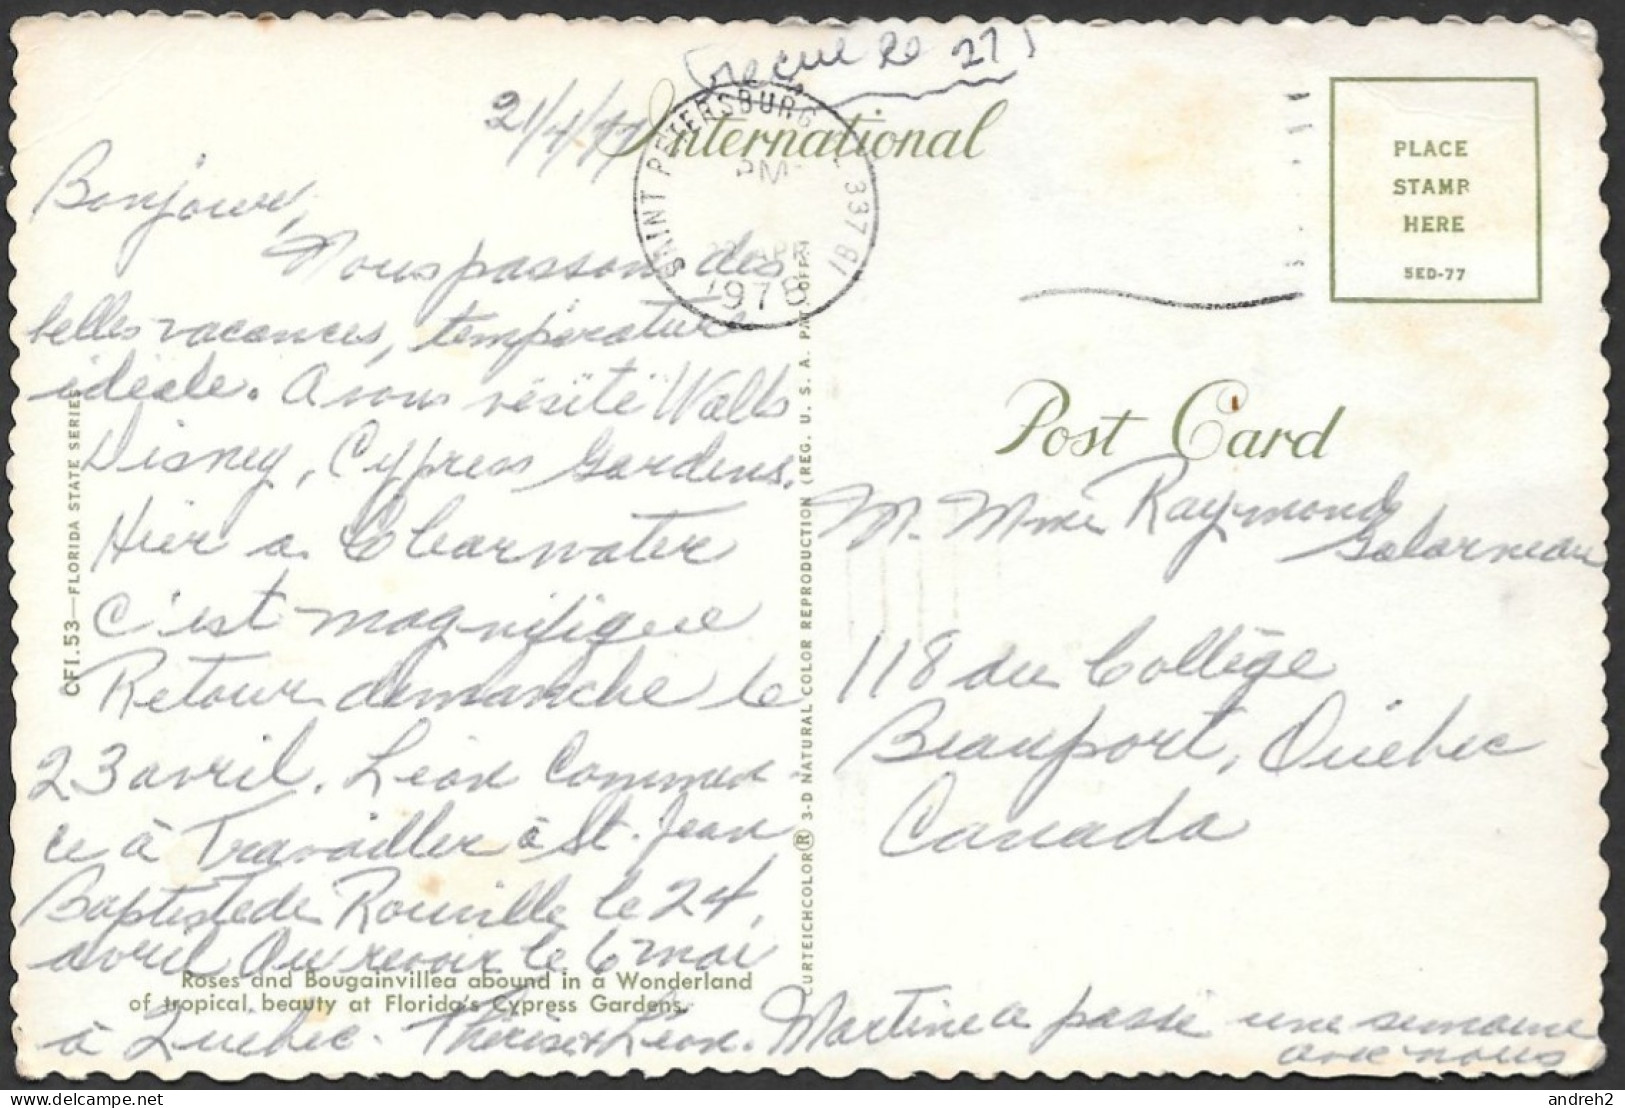 reçue le 27
21/4/77
International
SAINT PETERSBURG FL 33781
PM
22 APR
1978
PLACE
STAMP
HERE
5ED-77
Bonjour,
Nous passons des
belles vacances, température
idéale. Avons visité Walts
Disney, Cypress Gardens.
Hier a Clearwater
c'est magnifique
Retour dimanche le
23 avril. Léon commen
ce à Travailler à St. Jean
Baptiste de Rouville le 24,
avril Au revoir le 6 mai
à Québec. Thérèse & Léon. Martine a passé une semaine
avec nous
CFI.53—FLORIDA STATE SERIES
Roses and Bougainvillea abound in a Wonderland
of tropical beauty at Florida's Cypress Gardens.
CURTEICHCOLOR® 3-D NATURAL COLOR REPRODUCTION (REG. U. S. A. PAT. OFF.)
Post Card
M. Mme Raymond
Galarneau
118 du Collège
Beauport, Québec
Canada
delcampe.net
andreh2